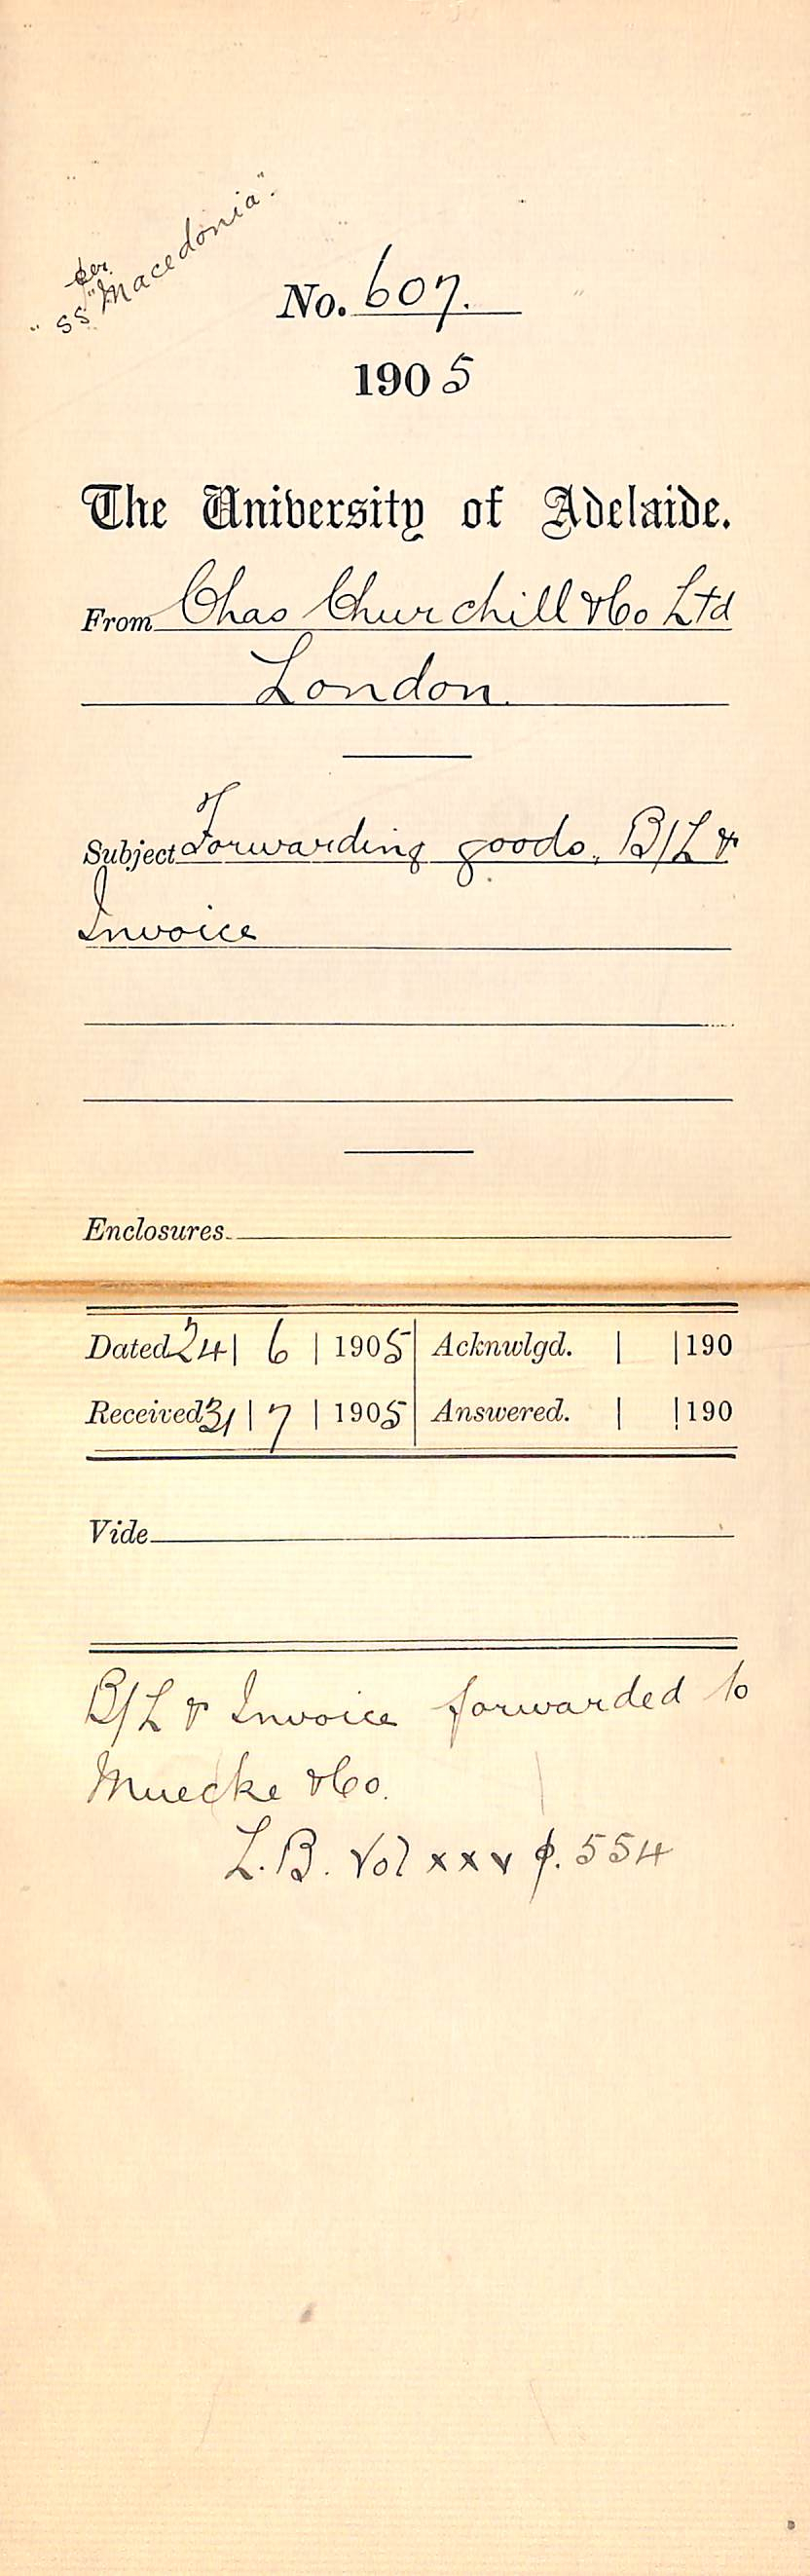 per
"SS "Macedonia".
No. 607.
1905
The University of Adelaide.
From Chas Churchill & Co Ltd
London.
Subject Forwarding goods, B/L &
Invoice
Enclosures
Dated 24 | 6 | 1905 Acknwlgd. | | 190
Received 31 | 7 | 1905 Answered. | | 190
Vide
B/L & Invoice forwarded to
Muecke & Co.
L.B. Vol xxv p. 554